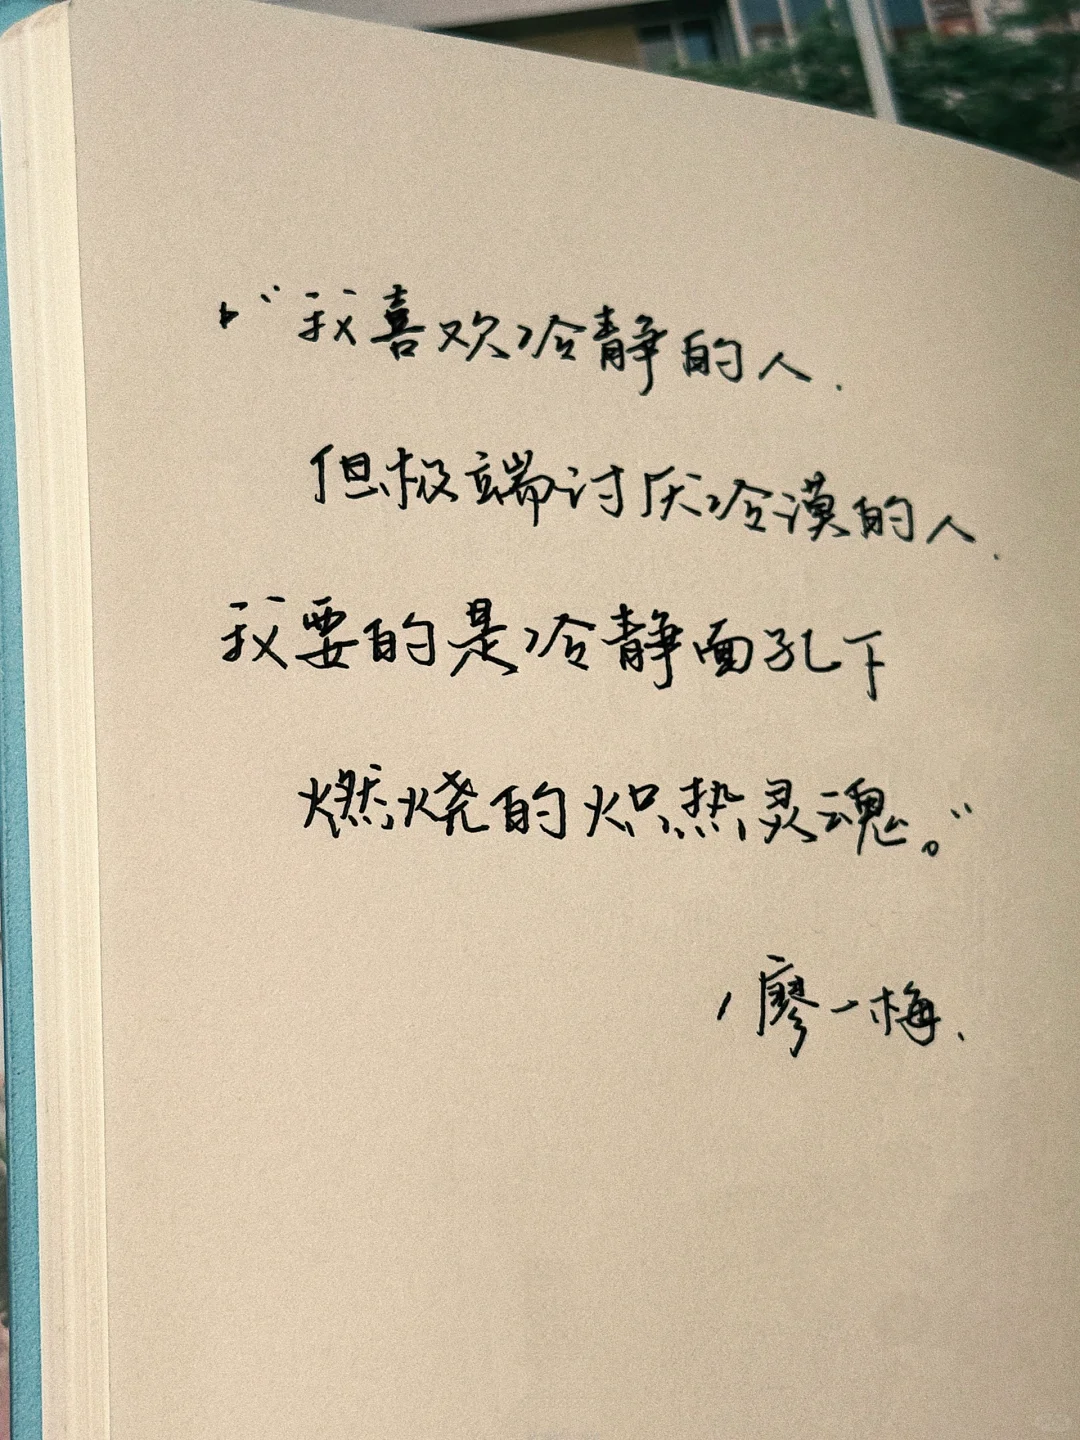 “我喜欢冷静的人.
但极端讨厌冷漠的人.
我要的是冷静面孔下
燃烧的炽热灵魂。”
/廖一梅、